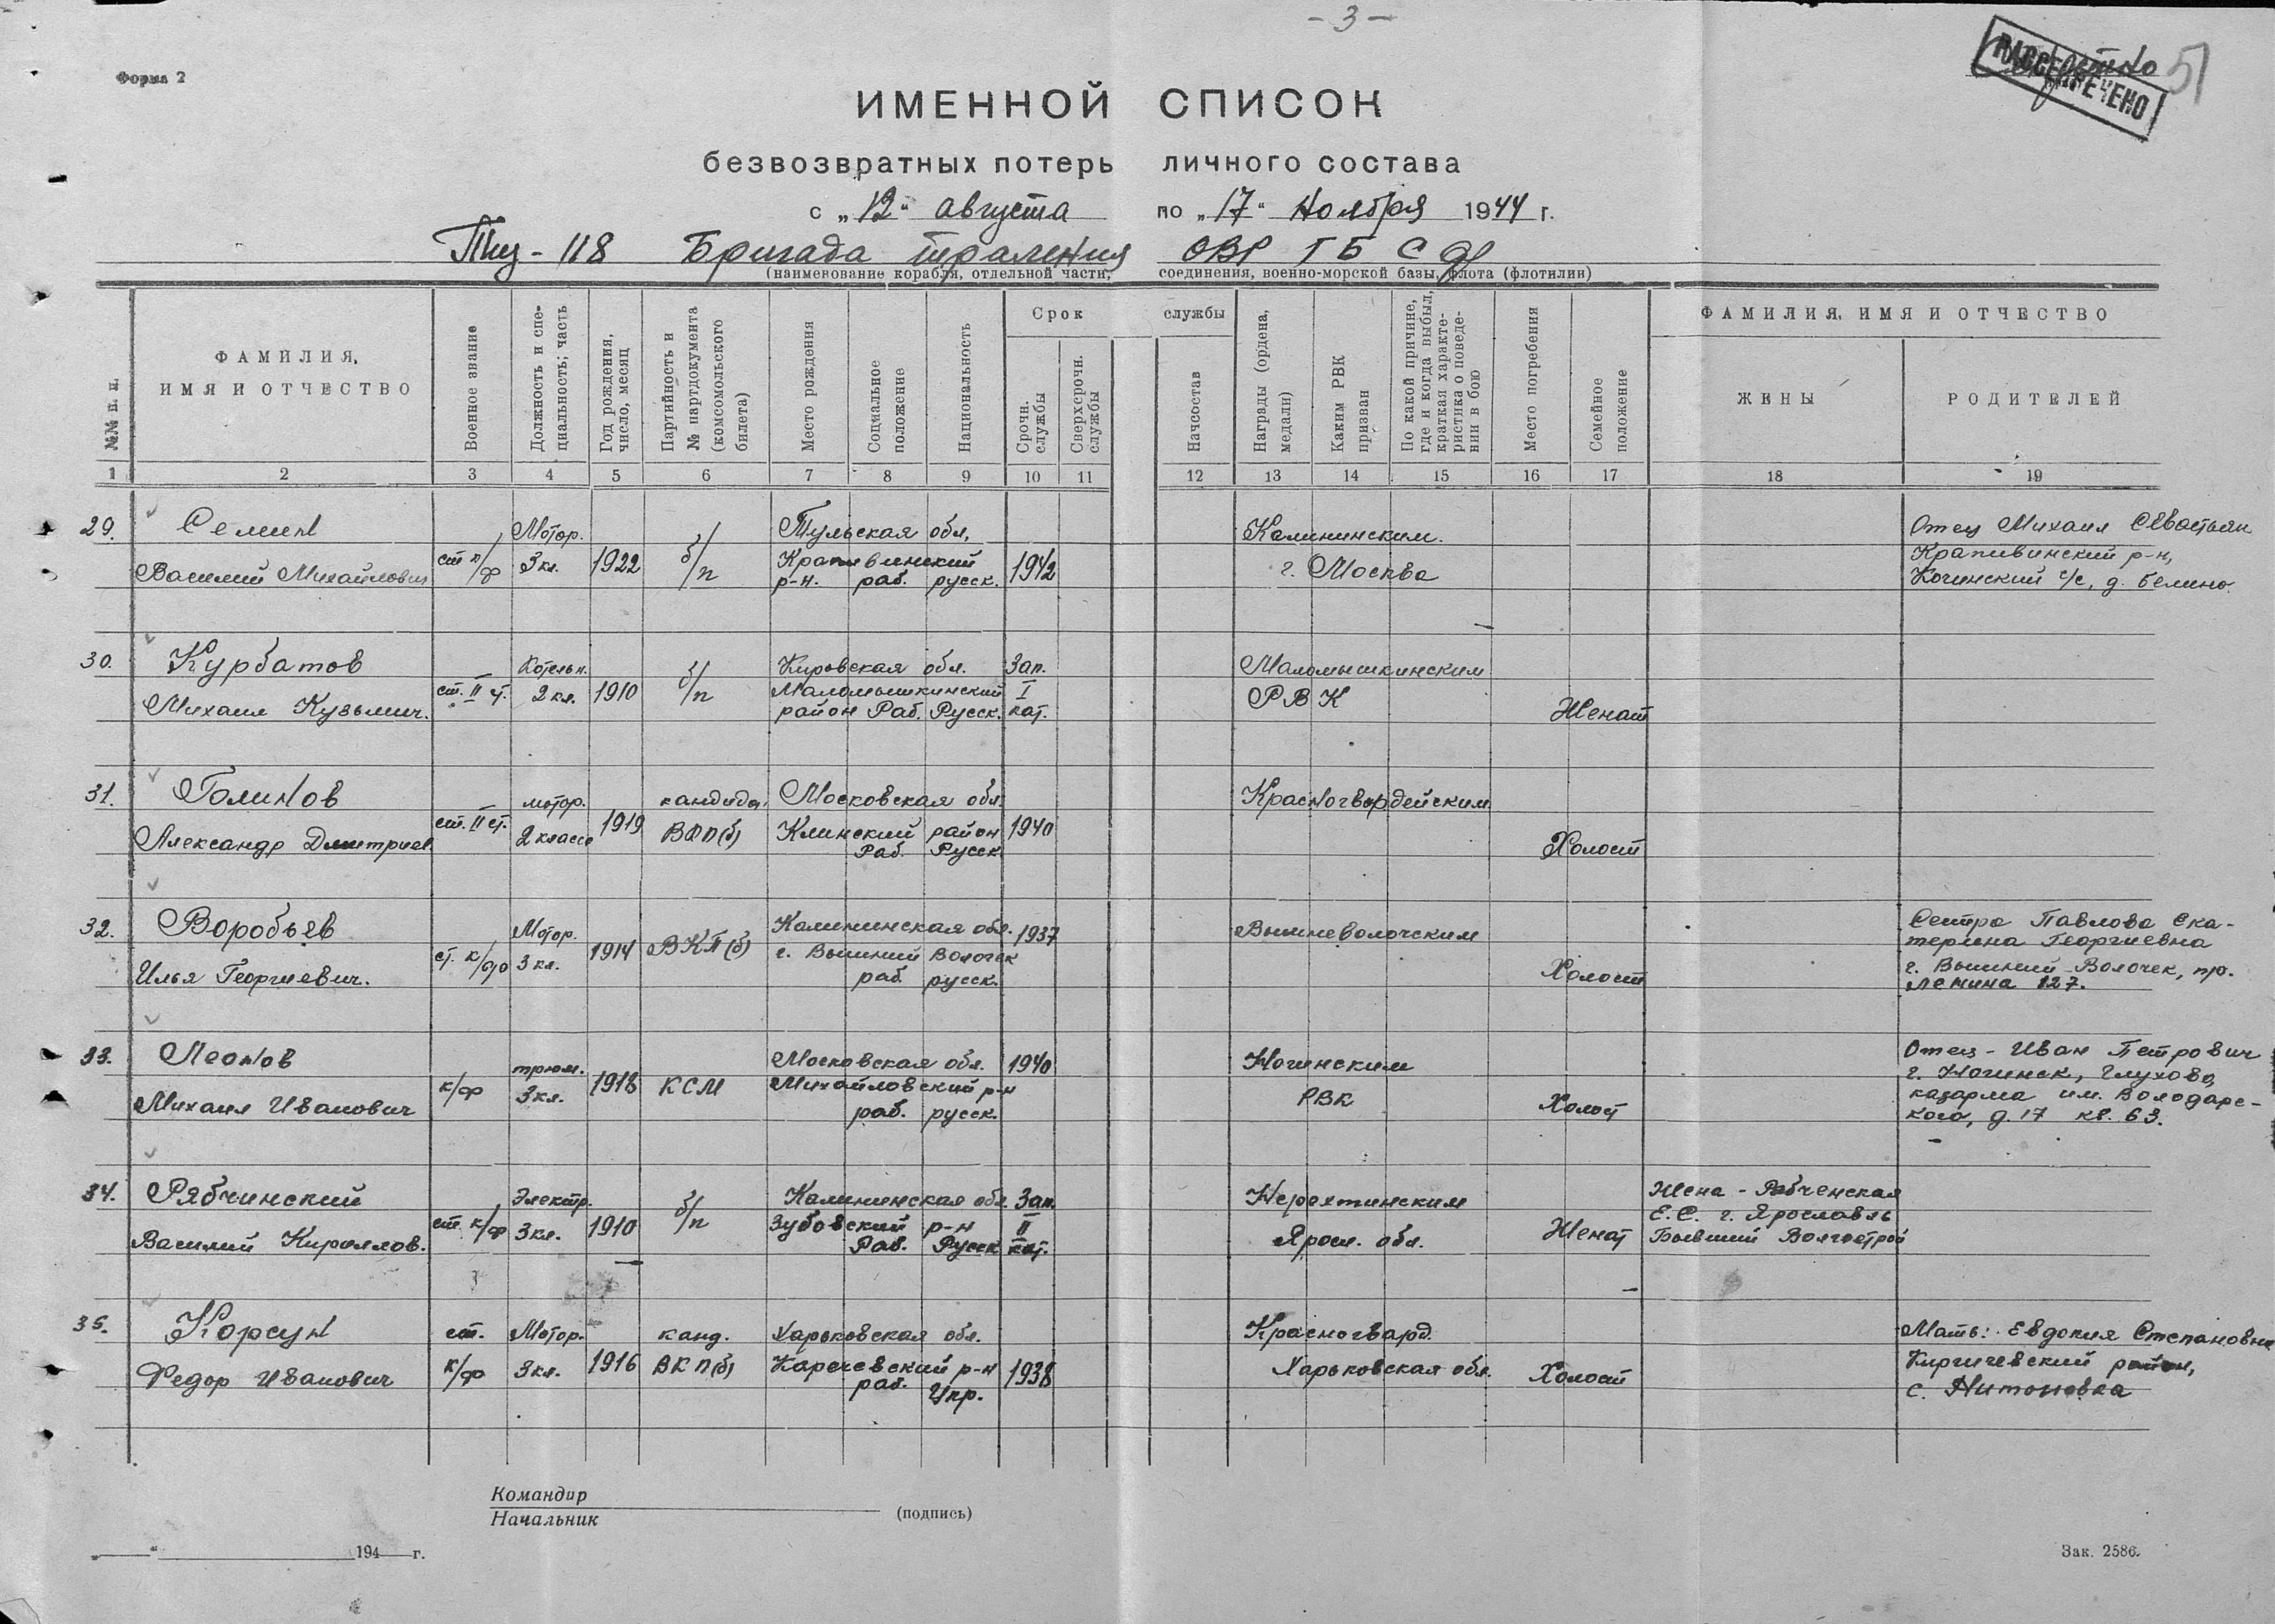 - 3 -
Форма 2
РАССЕКРЕЧЕНО
51
ИМЕННОЙ СПИСОК
безвозвратных потерь личного состава
с „12“ августа по „17“ ноября 1944 г.
Тщ-118 Бригада траления ОВР ГБ СФ
(наименование корабля, отдельной части, соединения, военно-морской базы, флота (флотилии)
№№ п. п.
ФАМИЛИЯ,
ИМЯ И ОТЧЕСТВО
Военное звание
Должность и спе-
циальность; часть
Год рождения,
число, месяц
Партийность и
№ партдокумента
(комсомольского
билета)
Место рождения
Социальное
положение
Национальность
Срок службы
Срочн.
службы
Сверхсрочн.
службы
Начсостав
Награды (ордена,
медали)
Каким РВК
призван
По какой причине,
где и когда выбыл,
краткая характе-
ристика о поведе-
нии в бою
Место погребения
Семейное
положение
ФАМИЛИЯ, ИМЯ И ОТЧЕСТВО
ЖЕНЫ
РОДИТЕЛЕЙ
1 2 3 4 5 6 7 8 9 10 11 12 13 14 15 16 17 18 19
29. Семин
Василий Михайлович
ст к/ф
Мотор.
3 кл.
1922
б/п
Тульская обл,
Крапивинский
р-н. раб. русск.
1942
Калининским.
г. Москва
Отец Михаил Севостьян
Крапивинский р-н,
Кочинский с/с, д. Белино.
30. Курбатов
Михаил Кузьмич.
ст. II ст.
Котельн.
2 кл.
1910
б/п
Кировская обл.
Маломышкинский
район Раб. Русск.
Зап.
I
кат.
Маломышкинским
РВК
Женат
31. Голинов
Александр Дмитриев.
ст. II ст.
мотор.
2 класса
1919
кандидат
ВКП(б)
Московская обл.
Клинский район
Раб. Русск
1940
Красногвардейским.
Холост
32. Воробьев
Илья Георгиевич.
ст. к/ф
Мотор.
3 кл.
1914
ВКП(б)
Калининская обл.
г. Вышний Волочек
раб. русск.
1937
Вышневолочским
Холост
Сестра Павлова Ека-
терина Георгиевна
г. Вышний-Волочек, пр.
Ленина 127.
33. Леонов
Михаил Иванович
к/ф
трюм.
3 кл.
1918
КСМ
Московская обл.
Михайловский р-н
раб. русск.
1940
Ногинским
РВК
Холост
Отец - Иван Петрович
г. Ногинск, Глухово,
казарма им. Володарс-
кого, д. 17 кв. 63.
34. Рябчинский
Василий Кириллов.
ст. к/ф
Электр.
3 кл.
1910
б/п
Калининская обл.
Зубовский р-н
Раб. Русск
Зап.
II
кат.
Нерехтинским
Яросл. обл.
Женат
Жена - Рабченская
Е.С. г. Ярославль
Бывший Волгострой
35. Корсун
Федор Иванович
ст.
к/ф
Мотор.
3 кл.
1916
канд.
ВКП(б)
Харьковская обл.
Каречевский р-н
раб. Укр.
1938
Красногвард.
Харьковская обл.
Холост
Мать: Евдокия Степановна
Киргичевский район,
с. Антоновка
Командир
Начальник
(подпись)
„ “ 194 г.
Зак. 2586.